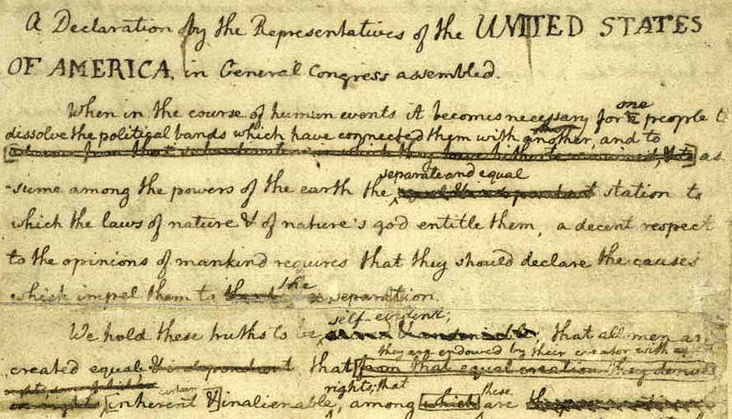 A Declaration by the Representatives of the UNITED STATES
OF AMERICA, in General Congress assembled.
When in the course of human events it becomes necessary for one people to
dissolve the political bands which have connected them with another, and to
as
-sume among the powers of the earth the separate and equal station to
which the laws of nature & of nature's god entitle them, a decent respect
to the opinions of mankind requires that they should declare the causes
which impel them to the separation.
self-evident;
We hold these truths to be that all men are
they are endowed by their creator with
created equal & independant that from that equal creation they derive
rights; that
certain [inherent &] inalienable, among [which] these are